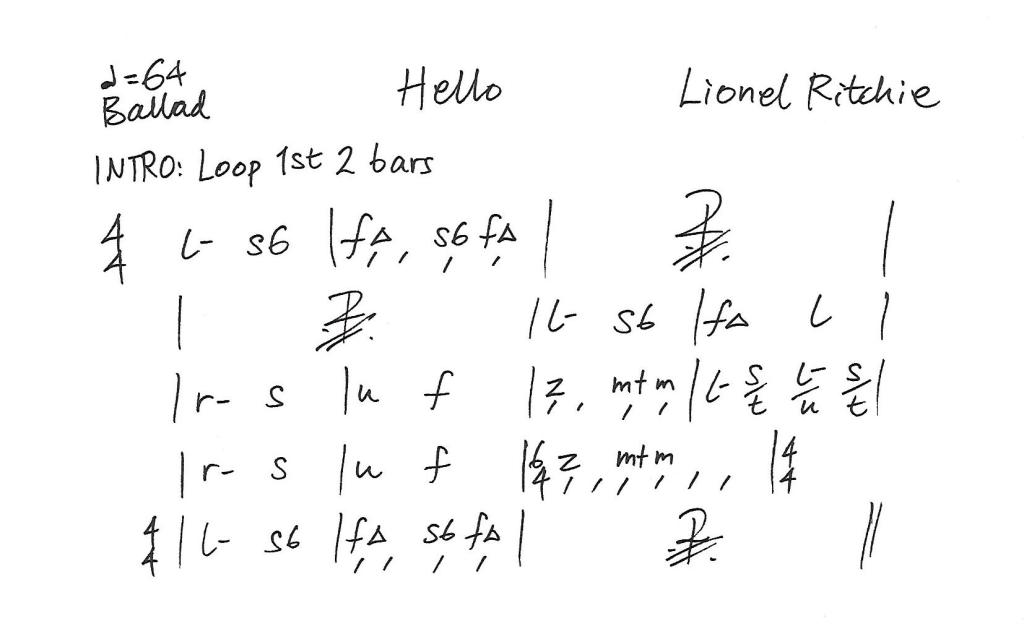 ♩=64 Hello Lionel Ritchie
Ballad
INTRO: Loop 1st 2 bars
4/4 l- s6 | f△, , s6, f△, | 2 |
| 2 | l- s6 | f△ l |
| r- s | u f | z, , mt, m, | l- s/t l-/u s/t |
| r- s | u f | 6/4 z, , , mt, m, , , | 4/4
4/4 | l- s6 | f△, , s6, f△, | 2 ||